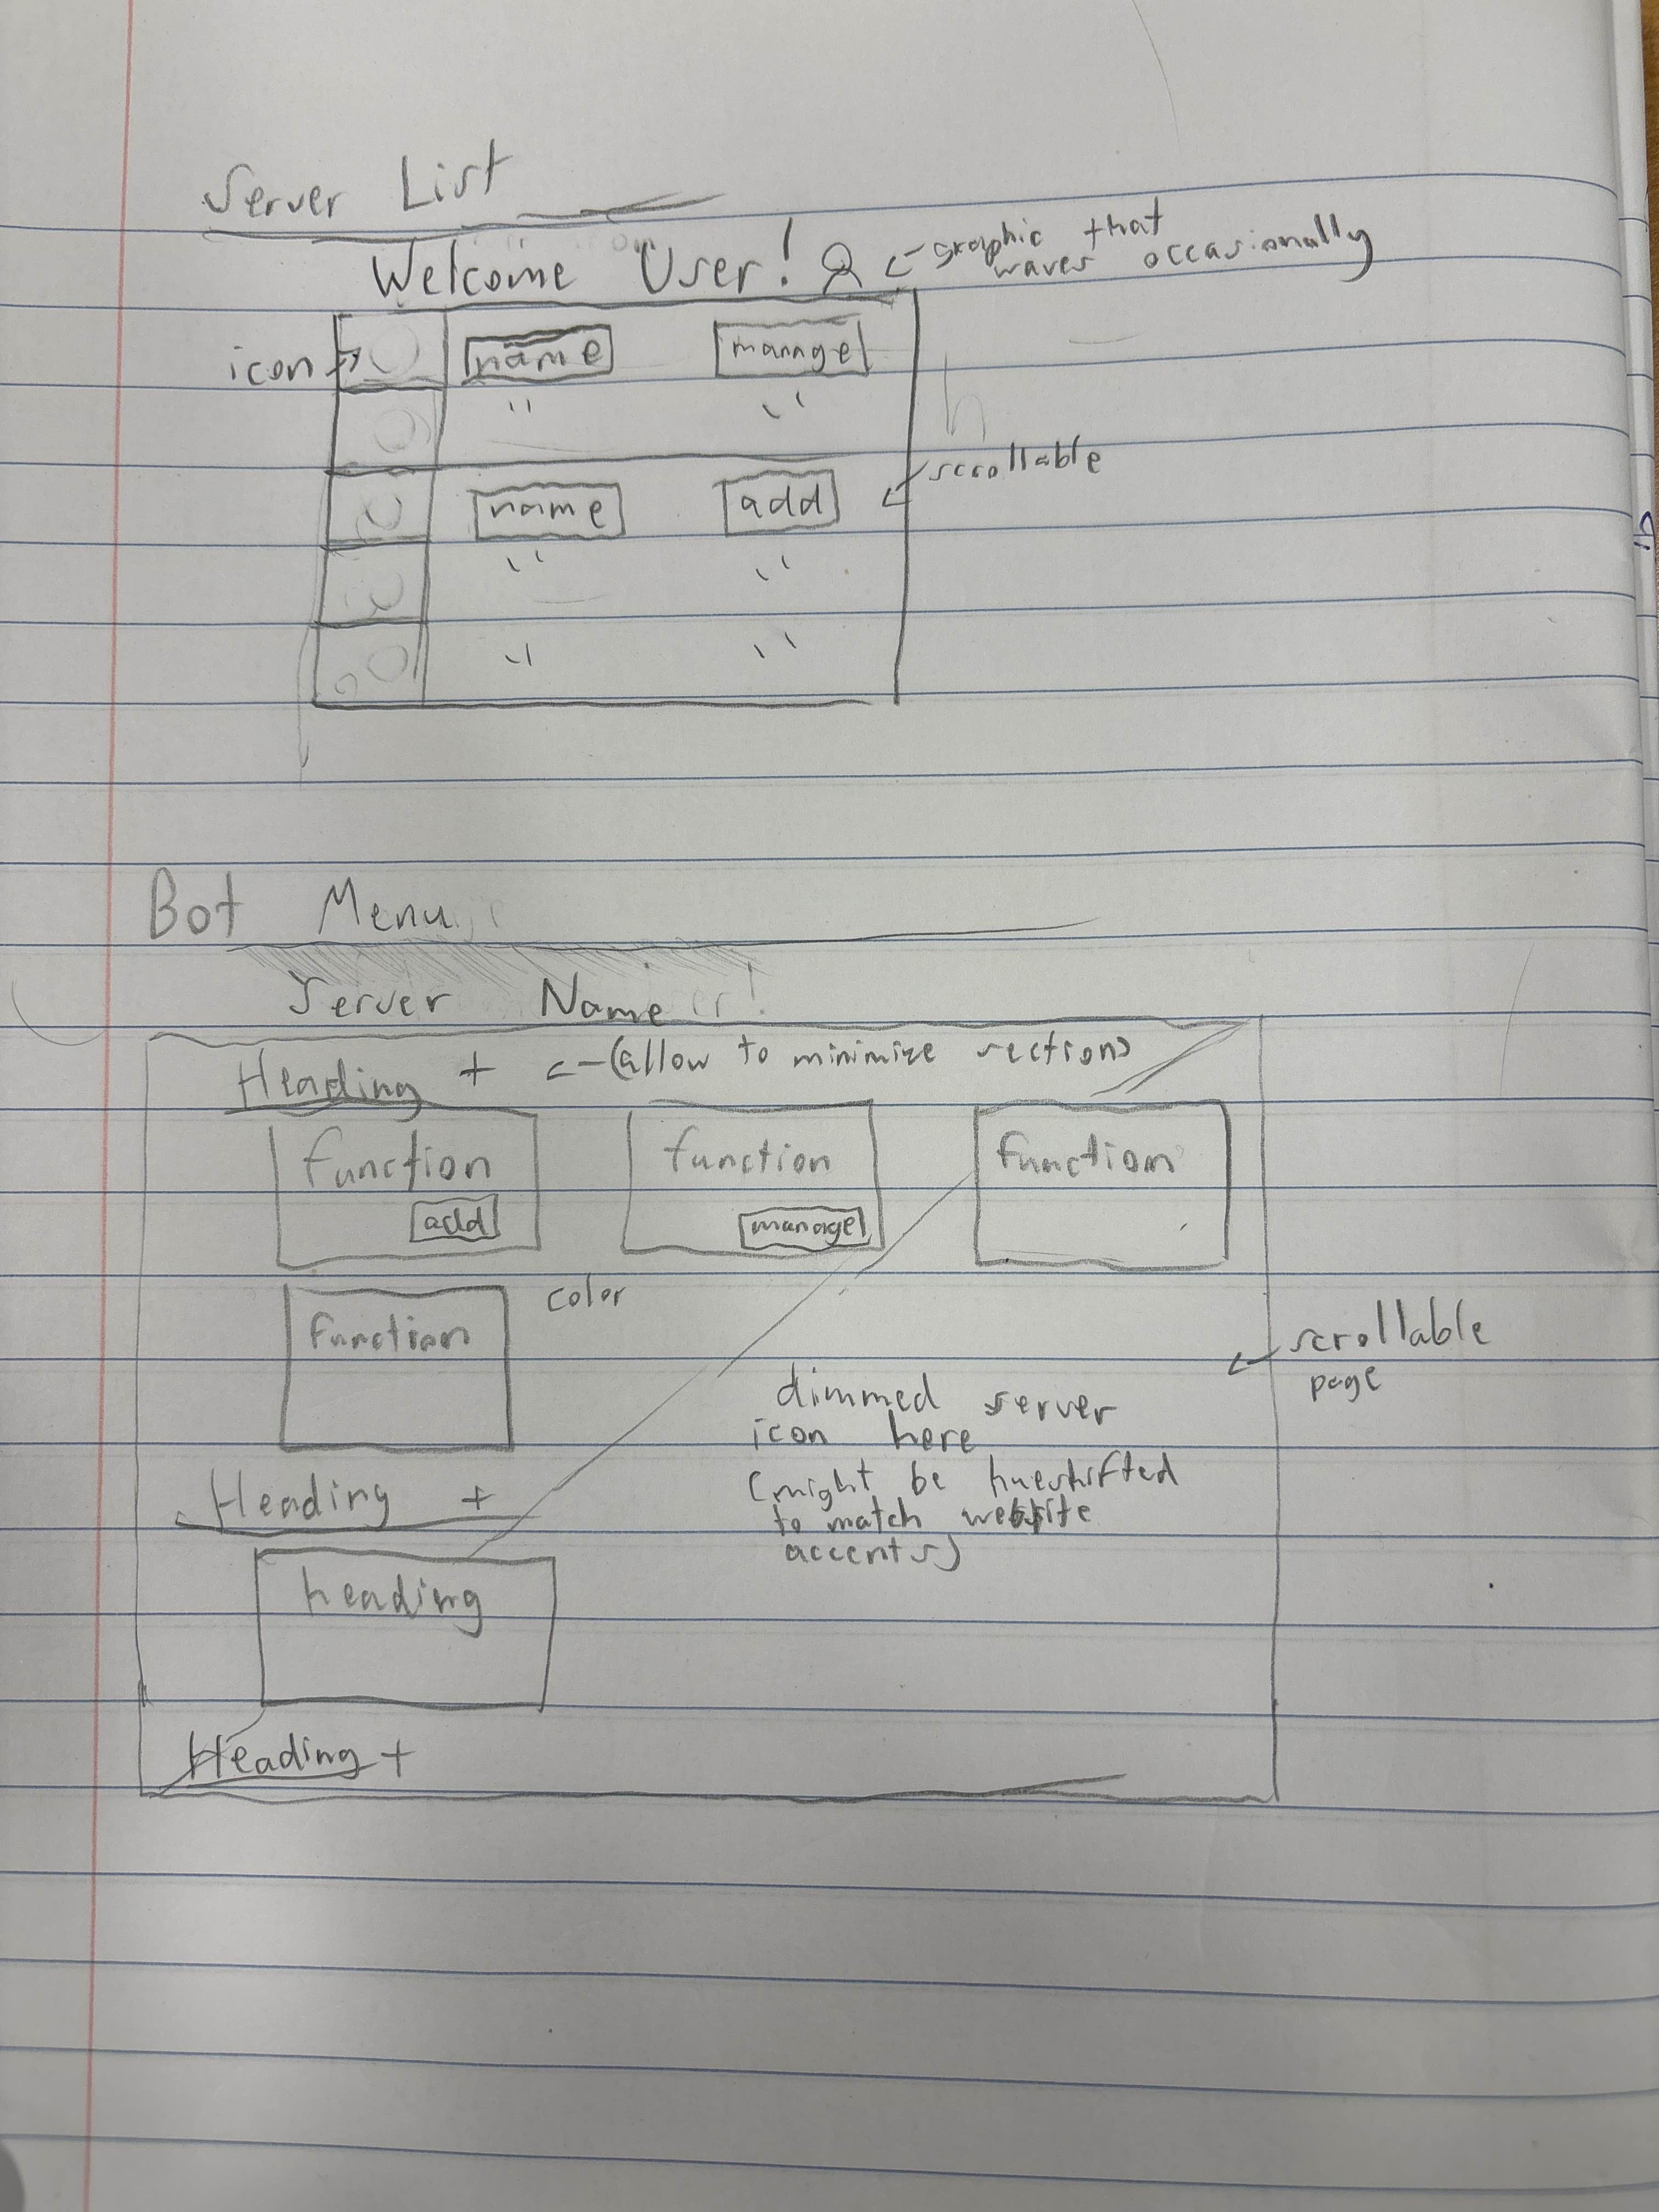 Server List
Welcome User!
<- graphic that
waves occasionally
icon ->
name manage
" "
<- scrollable
name add
" "
" "
Bot Menu
Server Name
Heading + <- (allow to minimize sections)
function function function
add manage
color
function
<- scrollable
page
dimmed server
icon here
(might be hueshifted
to match website
accents)
Heading +
heading
Heading +